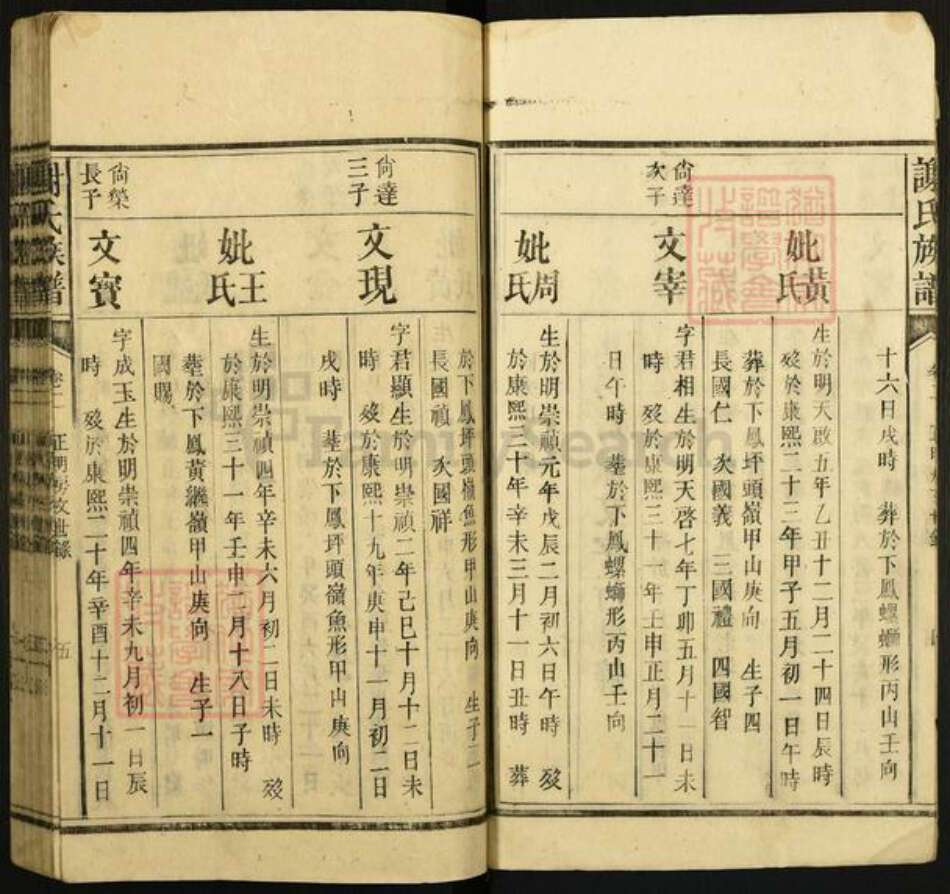 謝氏族譜
十六日戌時 葬於下鳳螺螄形丙山壬向
妣黃氏
生於明天啟五年乙丑十二月二十四日辰時
歿於康熙二十三年甲子五月初一日午時
葬於下鳳坪頭嶺甲山庚向 生子四
長國仁 次國義 三國禮 四國智
尙達次子
文宰
字君相生於明天啓七年丁卯五月十一日未
時 歿於康熙三十一年壬申正月二十一
日午時 塟於下鳳螺螄形丙山壬向
妣周氏
生於明崇禎元年戊辰二月初六日午時 歿
於康熙三十年辛未三月十一日丑時 葬
於下鳳坪頭嶺魚形甲山庚向 生子二
長國禎 次國祥
尙達三子
文現
字君顯生於明崇禎二年己巳十月十二日未
時 歿於康熙十九年庚申十一月初二日
戌時 塟於下鳳坪頭嶺魚形甲山庚向
妣王氏
生於明崇禎四年辛未六月初二日未時 歿
於康熙三十一年壬申二月十八日子時
塟於下鳳黃繼嶺甲山庚向 生子一
國賜
尙榮長子
文寳
字成玉生於明崇禎四年辛未九月初一日辰
時 歿於康熙二十年辛酉十二月十一日
謝氏族譜
正明房文世錄
五